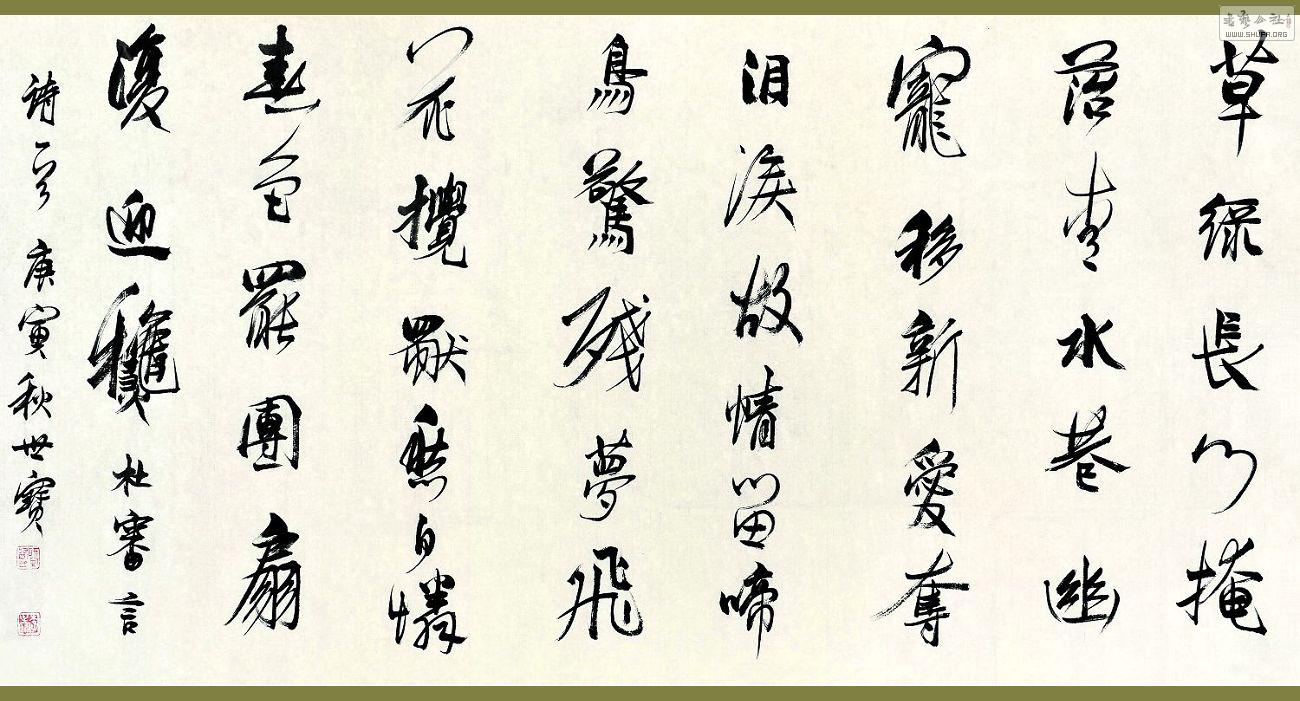 草綠長門掩
苔青水巷幽
寵移新愛奪
泪淚故情留啼
鳥驚殘夢飛
花攪獨愁自憐
春色罷團扇
復迎龝 杜審言
詩一首 庚寅秋世寶
書藝公社
WWW.SHUFA.ORG